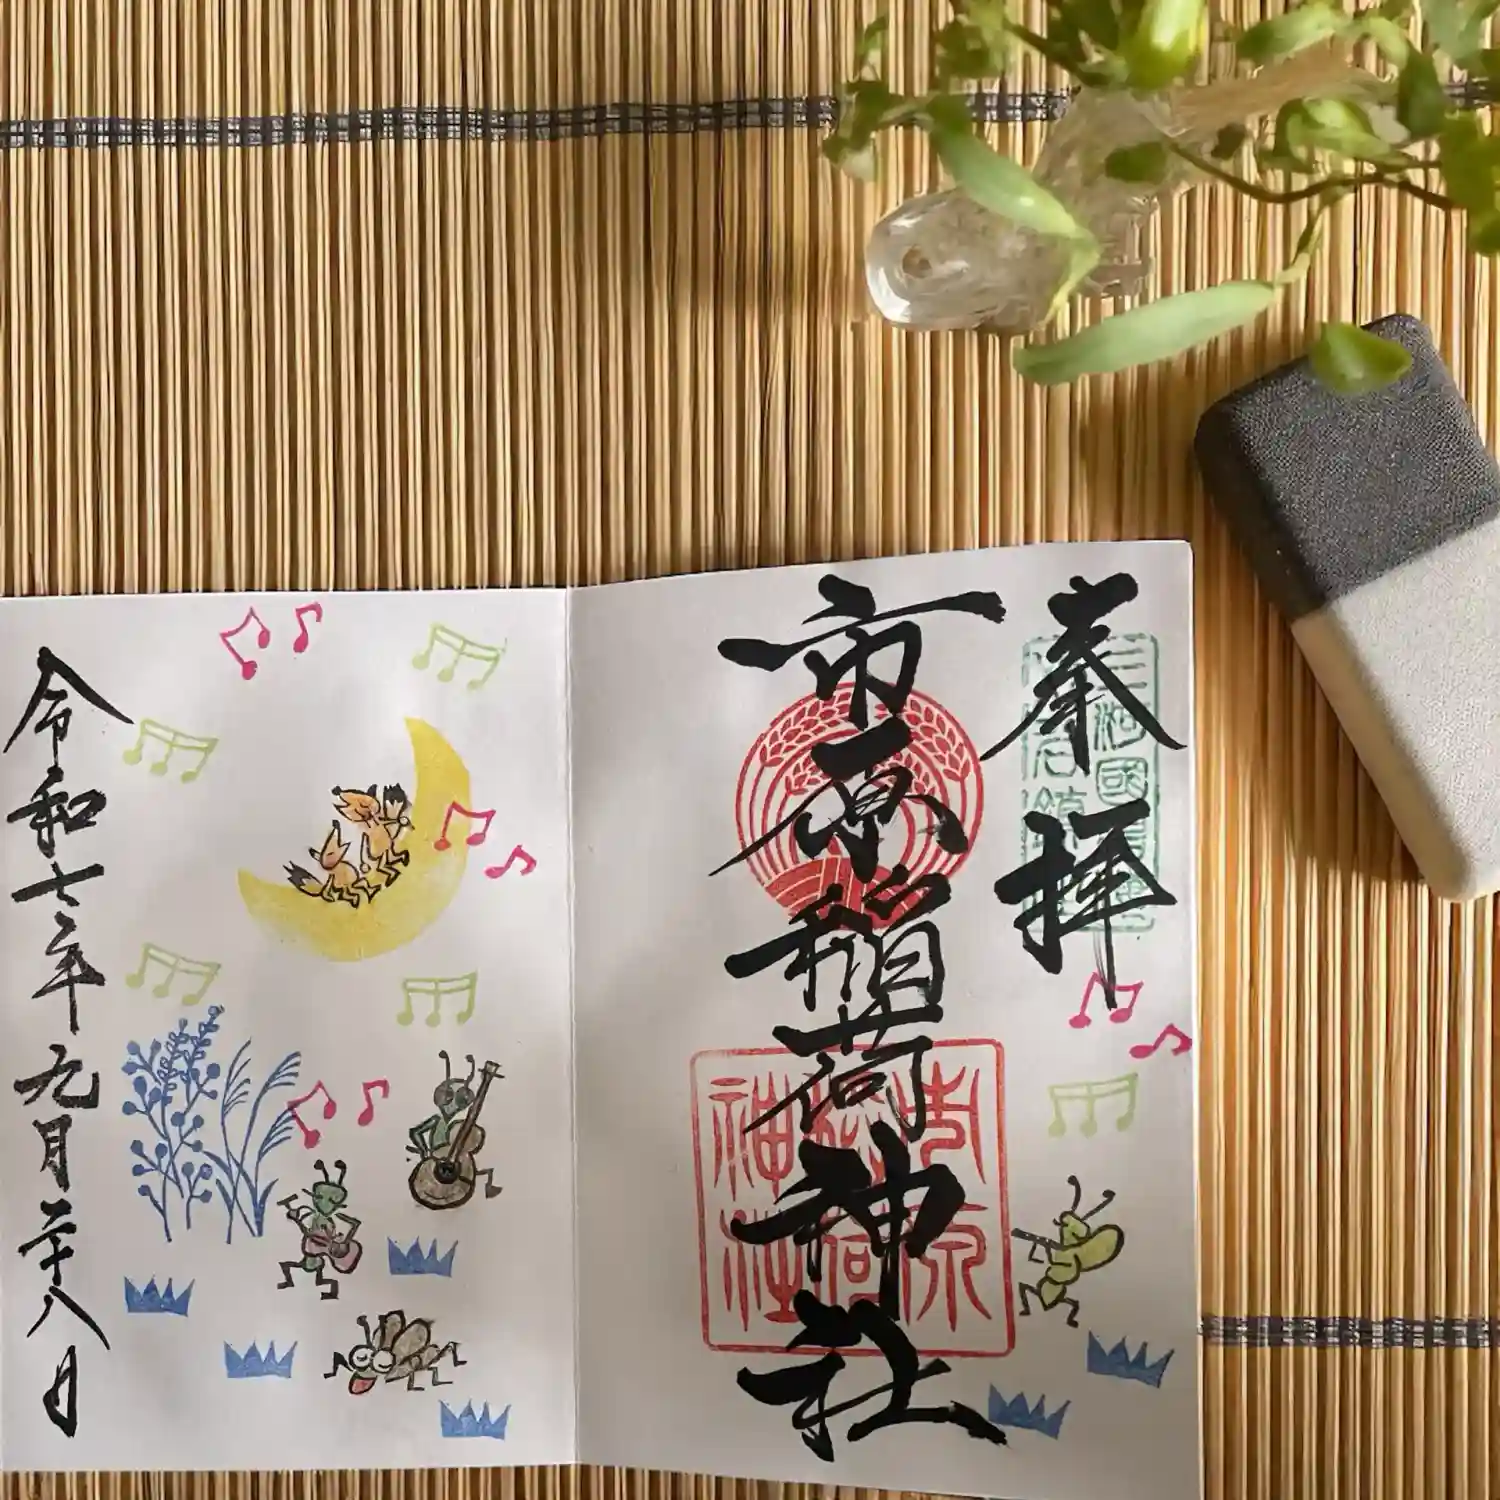 奉拝
市原稲荷神社
令和七年九月二十八日
市原
稲荷
神社